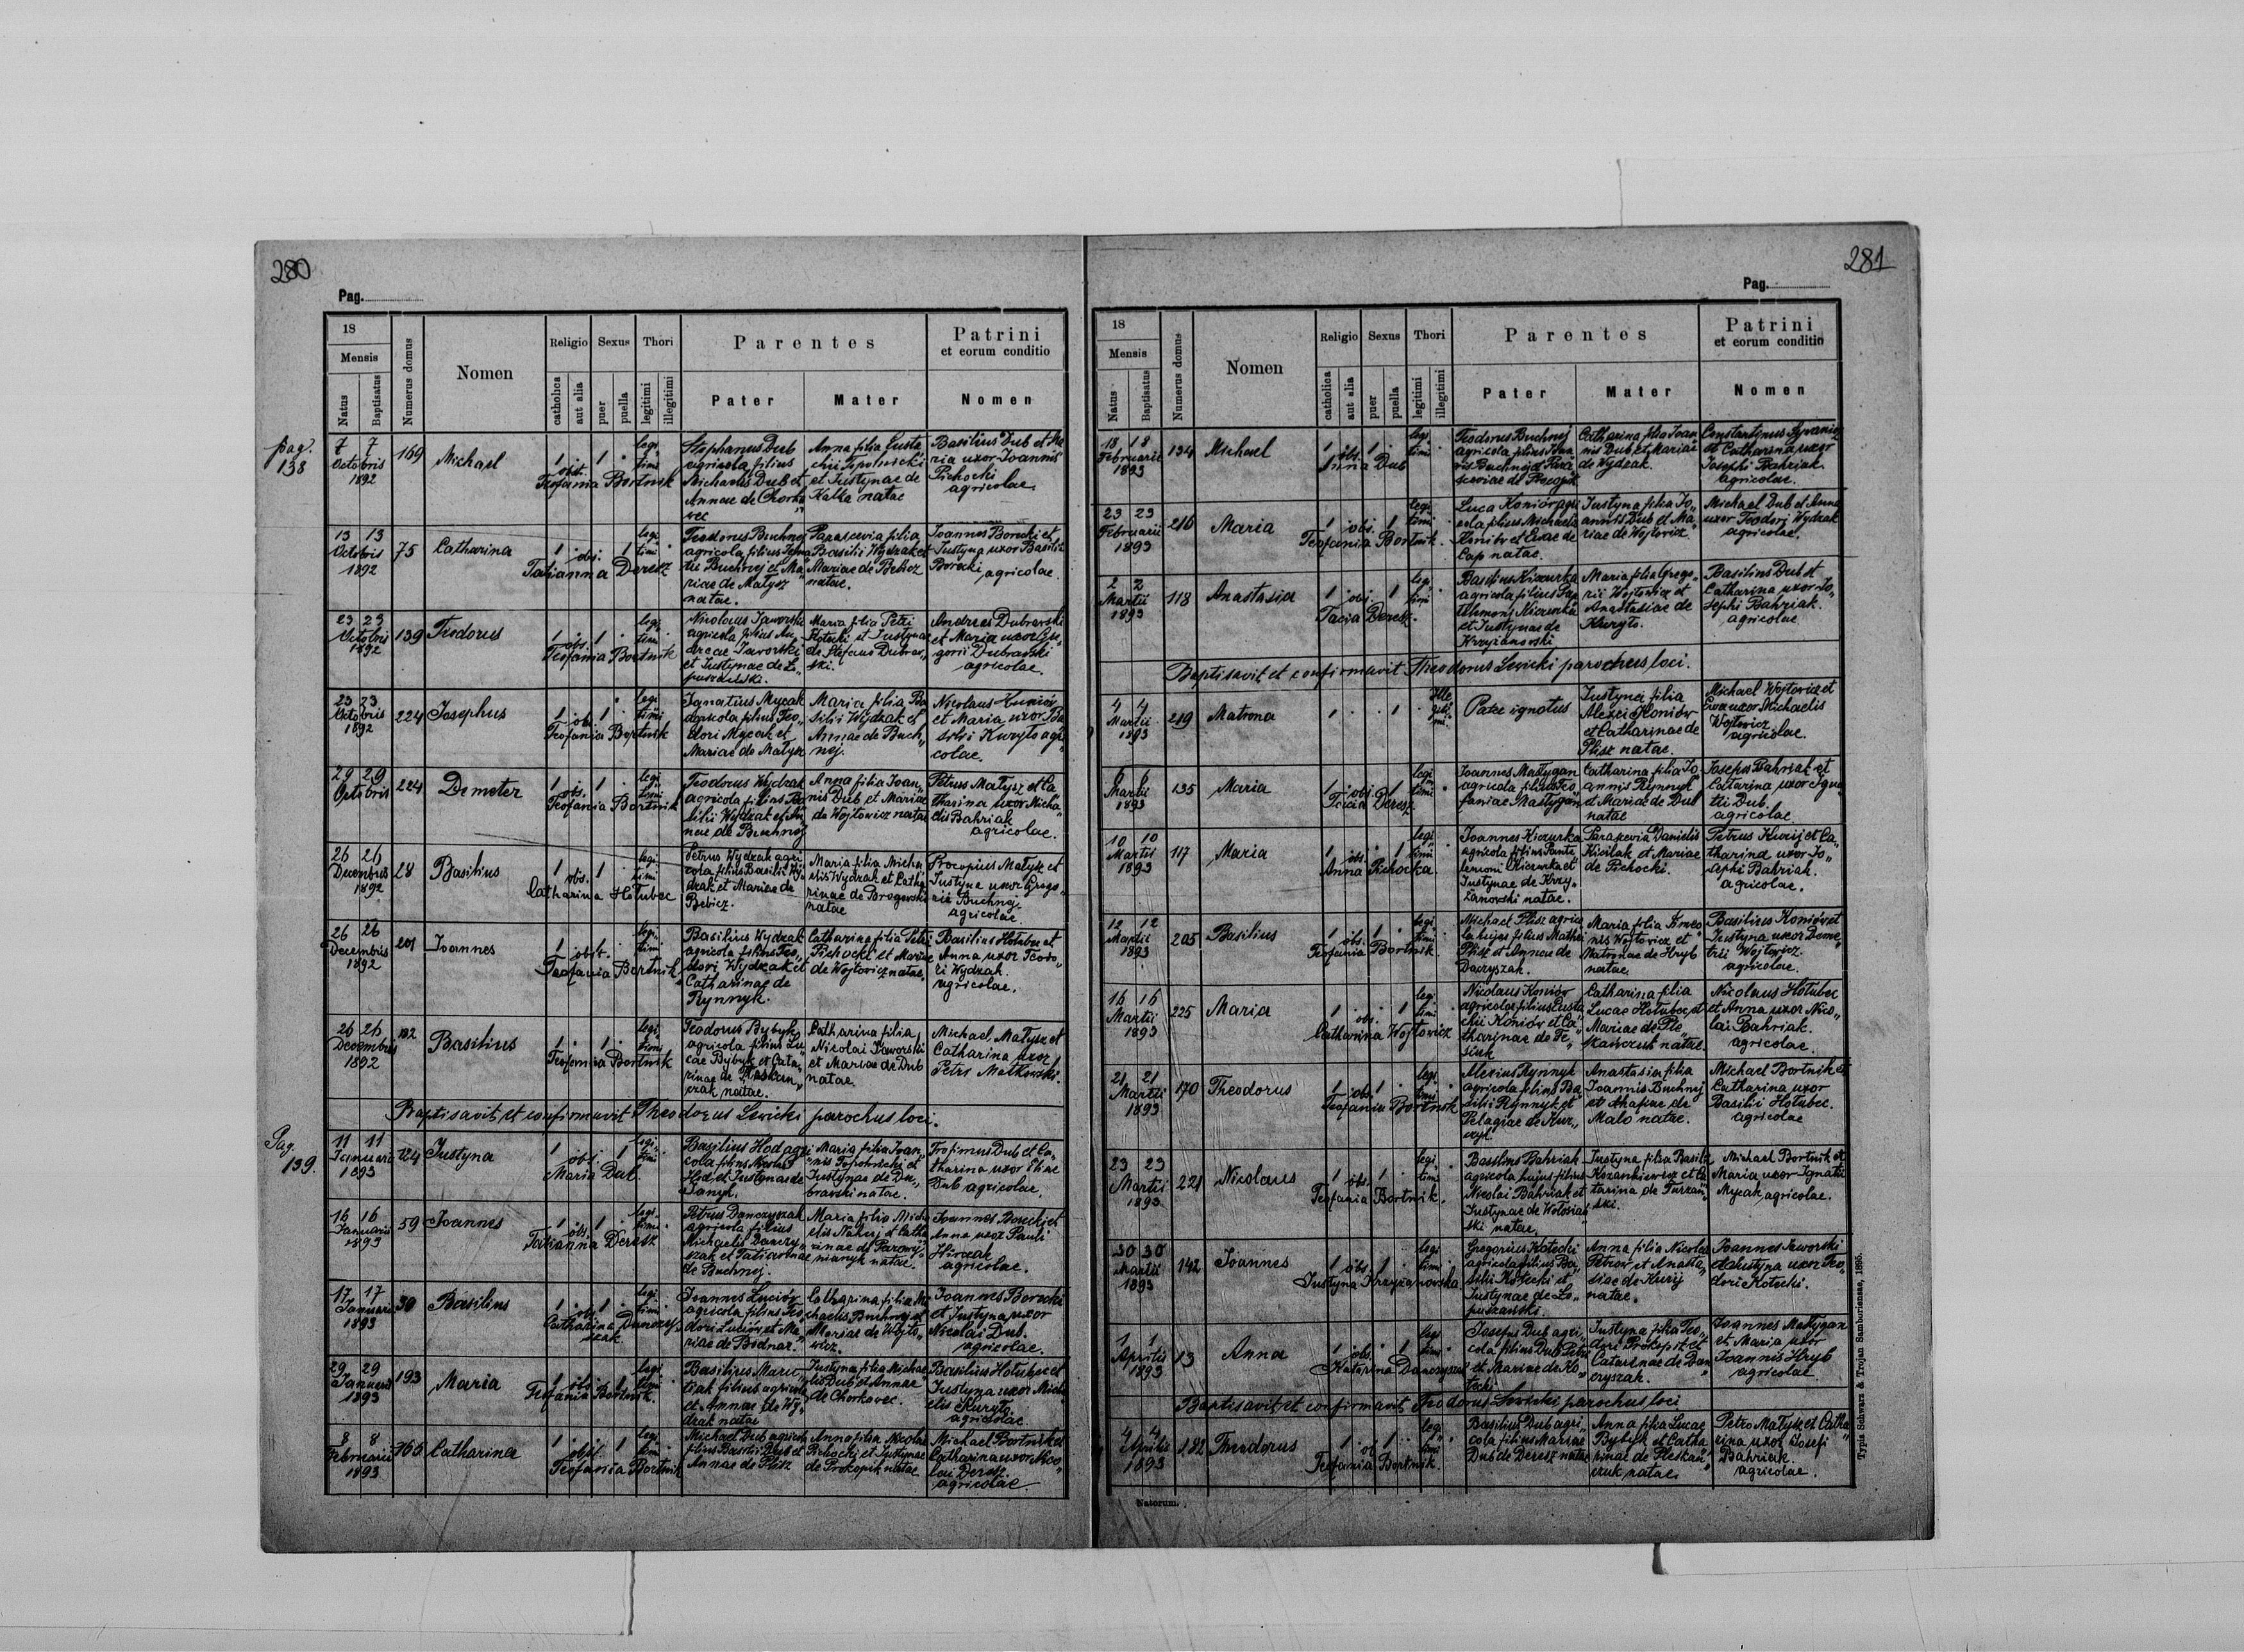 280
Pag.
18
Mensis
Natus
Baptisatus
Numerus domus
Nomen
Religio
catholica
aut alia
Sexus
puer
puella
Thori
legitimi
illegitimi
Parentes
Pater
Mater
Patrini
et eorum conditio
Nomen
pag. 138
7 7 Octobris 1892
169
Michael
1 obst. 1 legi timi
Teofania Bortnik
Stephanus Dub
agricola filius
Michaelis Dub et
Annae de Chorko
vec
Anna filia Eusta
chii Topolnicki
et Justynae de
Kalka natae
Basilius Dub et Ma
ria uxor Joannis
Pichocki
agricolae.
13 13 Octobris 1892
75
Catharina
1 obs. 1 legi timi
Tatianna Deresz
Teodorus Buchnej
agricola filius Igna
tii Buchnej et Ma
riae de Matysz
natae.
Parascevia filia
Basilii Wydzak et
Mariae de Bebicz
natae.
Joannes Borecki et
Justyna uxor Basilii
Borecki
agricolae.
23 23 Octobris 1892
139
Teodorus
1 obs. 1 legi timi
Teofania Bortnik
Nicolaus Jaworski
agricola filius An
dreae Jaworski
et Justynae de Lo
puszański.
Maria filia Petri
Kotecki et Justynae
de Stefaus Dubraw
ski.
Andreas Dubrawski
et Maria uxor Gre
gorii Dubrawski
agricolae.
23 23 Octobris 1892
224
Josephus
1 obs. 1 legi timi
Teofania Bortnik
Ignatius Mycak
agricola filius Teo
dori Mycak et
Mariae de Matysz
Maria filia Ba
silii Wydzak et
Annae de Buch
nej.
Nicolaus Kuniów
et Maria uxor Ba
silii Kuryło agri
colae.
29 29 Octobris
224
Demeter
1 obs. 1 legi timi
Teofania Bortnik
Teodorus Wydzak
agricola filius Ba
silii Wydzak et An
nae de Buchnej
Anna filia Joan
nis Dub et Mariae
de Wojtowicz natae
Petrus Matysz et Ca
tharina uxor Micha
elis Bahriak
agricolae.
26 26 Decembris 1892
28
Basilius
1 obs. 1 legi timi
Catharina Hołubec
Petrus Wydzak agri
cola filius Basilii Wy
dzak et Mariae de
Bebicz.
Maria filia Micha
elis Wydzak et Catha
rinae de
natae
Procopius Matysz et
Justyna uxor Grego
rii Buchnej
agricolae.
26 26 Decembris 1892
201
Joannes
1 obst. legi timi
Teofania Bortnik
Basilius Wydzak
agricola filius Teo
dori Wydzak et
Catharinae de
Rynnyk.
Catharina filia Petri
Pichocki et Mariae
de Wojtowicz natae
Basilius Hołubec et
Anna uxor Teodo
ri Wydzak.
agricolae.
26 26 Decembris 1892
102
Basilius
1 1 legi timi
Teofania Bortnik
Teodorus Bybyk
agricola filius Lu
cae Bybyk et Cata
rinae de Pleskan
czuk natae.
Catharina filia
Nicolai Jaworski
et Mariae de Dub
natae.
Michael Matysz et
Catharina uxor
Petri Matkowski.
Baptisavit et confirmavit Theodorus Lewicki parochus loci.
Pag. 139.
11 11 Januarii 1893
124
Justyna
1 obs. 1 legi timi
Maria Dub.
Basilius Hod agri
cola filius
Hod et Justynae de
Maria filia Joan
nis Topolnicki et
Justynae de Du
brawski natae.
Trofimus Dub et Ca
tharina uxor Eliae
Dub agricolae.
16 16 Januarii 1893
59
Joannes
1 obs. 1 legi timi
Tatianna Deresz
Petrus Danczyszak
agricola filius
Michaelis Danczy
szak et Tatiannae
de Buchnej.
Maria filia Mich
aelis Nahrij et Catha
rinae de
natae.
Joannes Borecki et
Anna uxor Pauli
agricolae.
17 17 Januarii 1893
30
Basilius
1 obs. 1 legi timi
Catharina Danczy
szak
Joannes Luciów
agricola filius Teo
dori Luciów et Ma
riae de Bodnar.
Catharina filia Mi
chaelis Buchnej et
Mariae de Wojto
wicz.
Joannes Borecki
et Justyna uxor
Nicolai Dub.
agricolae.
29 29 Januarii 1893
193
Maria
1 obs. 1 legi timi
Teofania Bortnik.
Basilius
filius agricola
et Annae de Wy
dzak natae
Justyna filia Michae
lis Dub et Annae
de Chorkovec.
Basilius Hołubec et
Justyna uxor Micha
elis Kuryło.
agricolae
8 8 Februarii 1893
Catharina
1 obst. 1 legi timi
Teofania Bortnik
Michael Dub agricola
filius Basilii Dub et
Annae de Plisz
Anna filia Nicolai
Pichocki et Justynae
de Prokopik natae
Michael Bortnik et
Catharina uxor Nico
lai Deresz.
agricolae
281
Pag.
18
Mensis
Natus
Baptisatus
Numerus domus
Nomen
Religio
catholica
aut alia
Sexus
puer
puella
Thori
legitimi
illegitimi
Parentes
Pater
Mater
Patrini
et eorum conditio
Nomen
18 18 Februarii 1893
134
Michael
1 obs. 1 legi timi
Anna Dub
Teodorus Buchnej
agricola filius Joan
nis Buchnej et Para
sceviae de Procopik
Catharina filia Joan
nis Dub et Mariae
de Wydzak.
Constantinus
et Catharina uxor
Josephi Bahriak
agricolae.
23 23 Februarii 1893
216
Maria
1 obs. 1 legi timi
Teofania Bortnik.
Luca Koniów agri
cola filius Michaelis
Koniów et Evae de
Cap natae.
Justyna filia Jo
annis Dub et Ma
riae de Wojtowicz.
Michael Dub et Anna
uxor Teodori Wydzak
agricolae.
2 2 Martii 1893
118
Anastasia
1 obs. 1 legi timi
Tacia Deresz.
Basilius Kiczurka
agricola filius Pan
telemoni Kiczurka
et Justynae de
Krzyżanowski
Maria filia Grego
rii Wojtowicz et
Anastasiae de
Kuryło.
Basilius Dub et
Catharina uxor Jo
sephi Bahriak.
agricolae
Baptisavit et confirmavit Theodorus Lewicki parochus loci.
4 4 Martii 1893
219
Matrona
1 . . 1 . Ille giti mi
Pater ignotus
Justyna filia
Alexei Koniów
et Catharinae de
Plisz natae.
Michael Wojtowicz et
Eva uxor Michaelis
Wojtowicz
agricolae.
6 6 Martii 1893
135
Maria
1 obs. 1 legi timi
Tacia Deresz
Joannes Mastygan
agricola filius Teo
faniae Mastygan
Catharina filia Jo
annis Rynnyk
et Mariae de Dub
natae
Josephus Bahriak et
Catarina uxor Igna
tii Dub.
agricolae
10 10 Martii 1893
117
Maria
1 obs. 1 legi timi
Anna Pichocka
Joannes Kiczurka
agricola filius Pante
lemoni Kiczurka et
Justynae de Krzy
żanowski natae.
Parascevia Danielis
Kisilak et Mariae
de Pichocki.
Petrus Kurij et Ca
tharina uxor Jo
sephi Bahriak.
agricolae.
12 12 Martii 1893
205
Basilius
1 obs. 1 legi timi
Teofania Bortnik.
Michael Plisz agrico
la hujus filius Mathei
Plisz et Annae de
Daczyszak.
Maria filia Simeo
nis Wojtowicz et
Matronae de Hryb
natae.
Basilius Koniów et
Justyna uxor Deme
trii Wojtowicz
agricolae.
16 16 Martii 1893
225
Maria
1 obs. 1 legi timi
Catharina Wojtowicz
Nicolaus Koniów
agricola filius Eusta
chii Koniów et Ca
tharinae de Fe
Catharina filia
Lucae Hołubec et
Mariae de Ple
skańczuk natae.
Nicolaus Hołubec
et Anna uxor Nico
lai Bahriak.
agricolae.
21 21 Martii 1893
170
Theodorus
1 obs. 1 legi timi
Teofania Bortnik
Alexius Rynnyk
agricola filius Ba
silii Rynnyk et
Pelagiae de
Anastasia filia
Joannis Buchnej
et Ahafiae de
Mało natae.
Michael Bortnik et
Catharina uxor
Basilii Hołubec.
agricolae
23 23 Martii 1893
221
Nicolaus
1 obs. 1 legi timi
Teofania Bortnik.
Basilius Bahriak
agricola hujus filius
Nicolai Bahriak et
Justynae de Wołosiań
ski natae.
Justyna filia Basilii
Kozankiewicz et Ca
tarina de Turzań
ski.
Michael Bortnik et
Maria uxor Ignatii
Mycak agricolae.
30 30 Martii 1893
142
Joannes
1 obs. 1 legi timi
Justyna Krzyżanowska
Gregorius Kotecki
agricola filius Ba
silii Kotecki et
Justynae de Lo
puszański.
Anna filia Nicolai
Petrów et Anasta
siae de Kurij
natae.
Joannes Jaworski
et Justyna uxor Teo
dori Kotecki.
1 1 Aprilis 1893
13
Anna
1 obs. 1 legi timi
Katarina Danczyszak
Josephus Dub agri
cola filius Dub Petri
et Mariae de Ko
tecki
Justyna filia Teo
dori Prokopik et
Catarinae de Dan
czyszak.
Joannes Mastygan
et Maria uxor
Joannis Hryb
agricolae
Baptisavit et confirmavit Teodorus Lewicki parochus loci
4 4 Aprilis 1893
182
Theodorus
1 ob. 1 legi timi
Teofania Bortnik.
Basilius Dub agri
cola filius Mariae
Dub de Deresz natae
Anna filia Lucae
Bybyk et Catha
rinae de Pleskań
czuk natae.
Petro Matysz et Catha
rina uxor Josefi
Bahriak.
agricolae.
Natorum.
Typis Schwarz & Trojan Samboriensae, 1895.